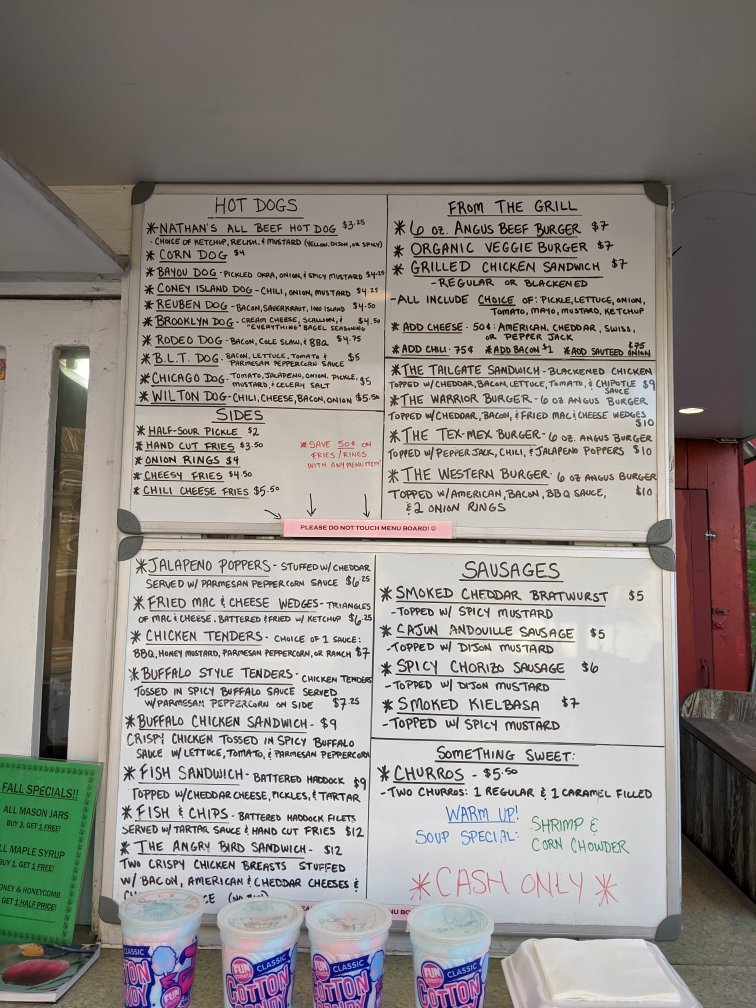 HOT DOGS
* NATHAN'S ALL BEEF HOT DOG $3.25
- CHOICE OF KETCHUP, RELISH, & MUSTARD (YELLOW, DIJON, OR SPICY)
* CORN DOG $4
* BAYOU DOG - PICKLED OKRA, ONION, & SPICY MUSTARD $4.25
* CONEY ISLAND DOG - CHILI, ONION, MUSTARD $4.25
* REUBEN DOG - BACON, SAUERKRAUT, 1000 ISLAND $4.50
* BROOKLYN DOG - CREAM CHEESE, SCALLION, & "EVERYTHING" BAGEL SEASONING $4.50
* RODEO DOG - BACON, COLE SLAW, & BBQ $4.75
* B.L.T. DOG - BACON, LETTUCE, TOMATO & PARMESAN PEPPERCORN SAUCE $5
* CHICAGO DOG - TOMATO, JALAPENO, ONION, PICKLE, MUSTARD, & CELERY SALT $5
* WILTON DOG - CHILI, CHEESE, BACON, ONION $5.50
SIDES
* HALF-SOUR PICKLE $2
* HAND CUT FRIES $3.50
* ONION RINGS $4
* CHEESY FRIES $4.50
* CHILI CHEESE FRIES $5.50
* SAVE 50¢ ON
FRIES/RINGS
WITH ANY MENU ITEM!
FROM THE GRILL
* 6 OZ. ANGUS BEEF BURGER $7
* ORGANIC VEGGIE BURGER $7
* GRILLED CHICKEN SANDWICH $7
- REGULAR OR BLACKENED
- ALL INCLUDE CHOICE OF: PICKLE, LETTUCE, ONION,
TOMATO, MAYO, MUSTARD, KETCHUP
* ADD CHEESE - 50¢: AMERICAN, CHEDDAR, SWISS,
OR PEPPER JACK
* ADD CHILI - 75¢ * ADD BACON $1 * ADD SAUTEED ONION $.75
* THE TAILGATE SANDWICH - BLACKENED CHICKEN
TOPPED W/ CHEDDAR, BACON, LETTUCE, TOMATO, & CHIPOTLE SAUCE $9
* THE WARRIOR BURGER - 6 OZ ANGUS BURGER
TOPPED W/ CHEDDAR, BACON, & FRIED MAC & CHEESE WEDGES $10
* THE TEX-MEX BURGER - 6 OZ. ANGUS BURGER
TOPPED W/ PEPPER JACK, CHILI, & JALAPENO POPPERS $10
* THE WESTERN BURGER - 6 OZ ANGUS BURGER
TOPPED W/ AMERICAN, BACON, BBQ SAUCE, $10
& 2 ONION RINGS
PLEASE DO NOT TOUCH MENU BOARD! ☺
* JALAPENO POPPERS - STUFFED W/ CHEDDAR
SERVED W/ PARMESAN PEPPERCORN SAUCE $6.25
* FRIED MAC & CHEESE WEDGES - TRIANGLES
OF MAC & CHEESE, BATTERED & FRIED W/ KETCHUP $6.25
* CHICKEN TENDERS - CHOICE OF 1 SAUCE:
BBQ, HONEY MUSTARD, PARMESAN PEPPERCORN, OR RANCH $7
* BUFFALO STYLE TENDERS - CHICKEN TENDERS
TOSSED IN SPICY BUFFALO SAUCE SERVED
W/ PARMESAN PEPPERCORN ON SIDE $7.25
* BUFFALO CHICKEN SANDWICH - $9
CRISPY CHICKEN TOSSED IN SPICY BUFFALO
SAUCE W/ LETTUCE, TOMATO, & PARMESAN PEPPERCORN
* FISH SANDWICH - BATTERED HADDOCK $9
TOPPED W/ CHEDDAR CHEESE, PICKLES, & TARTAR
* FISH & CHIPS - BATTERED HADDOCK FILETS
SERVED W/ TARTAR SAUCE & HAND CUT FRIES $12
* THE ANGRY BIRD SANDWICH - $12
TWO CRISPY CHICKEN BREASTS STUFFED
W/ BACON, AMERICAN & CHEDDAR CHEESES &
SAUSAGES
* SMOKED CHEDDAR BRATWURST $5
- TOPPED W/ SPICY MUSTARD
* CAJUN ANDOUILLE SAUSAGE $5
- TOPPED W/ DIJON MUSTARD
* SPICY CHORIZO SAUSAGE $6
- TOPPED W/ DIJON MUSTARD
* SMOKED KIELBASA $7
- TOPPED W/ SPICY MUSTARD
SOMETHING SWEET:
* CHURROS - $5.50
- TWO CHURROS: 1 REGULAR & 1 CARAMEL FILLED
WARM UP!
SOUP SPECIAL: SHRIMP &
CORN CHOWDER
* CASH ONLY *
MENU BOA
FALL SPECIALS!!
ALL MASON JARS
BUY 3, GET 1 FREE!
L MAPLE SYRUP
BUY 1, GET 1 FREE!
ONEY & HONEYCOMB
GET 1 HALF PRICE!
CLASSIC
FUN
CLASSIC
COTTON
FUN
CLASSIC
COTTON
FUN
CLASSIC
COTTON